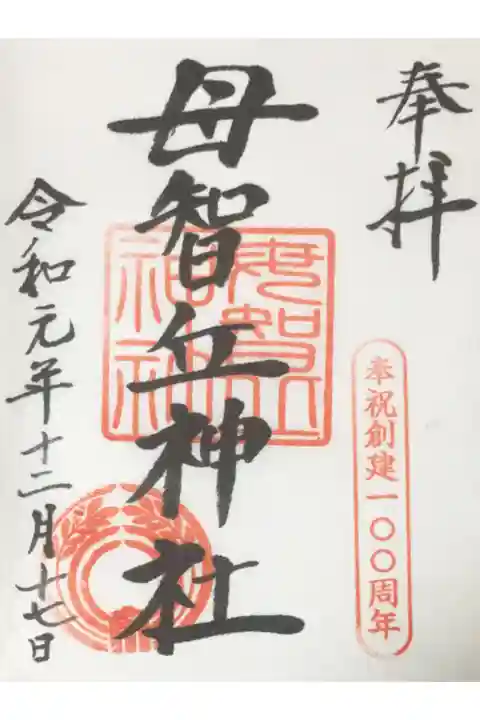 奉拝
奉祝創建一〇〇周年
母智丘神社
母智丘
神社
令和元年十二月十七日